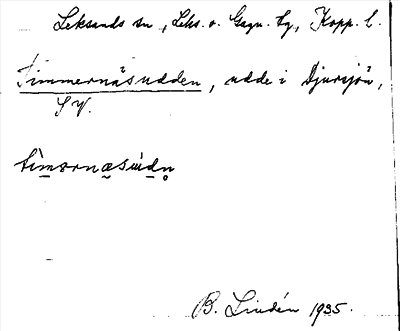 Leksands sn, Leks. o. Gagn. tg, Kopp. l.
Timmernäsudden, udde i Djursjön,
SV.
tìmərnæsùdn̥
B. Lindén 1935.